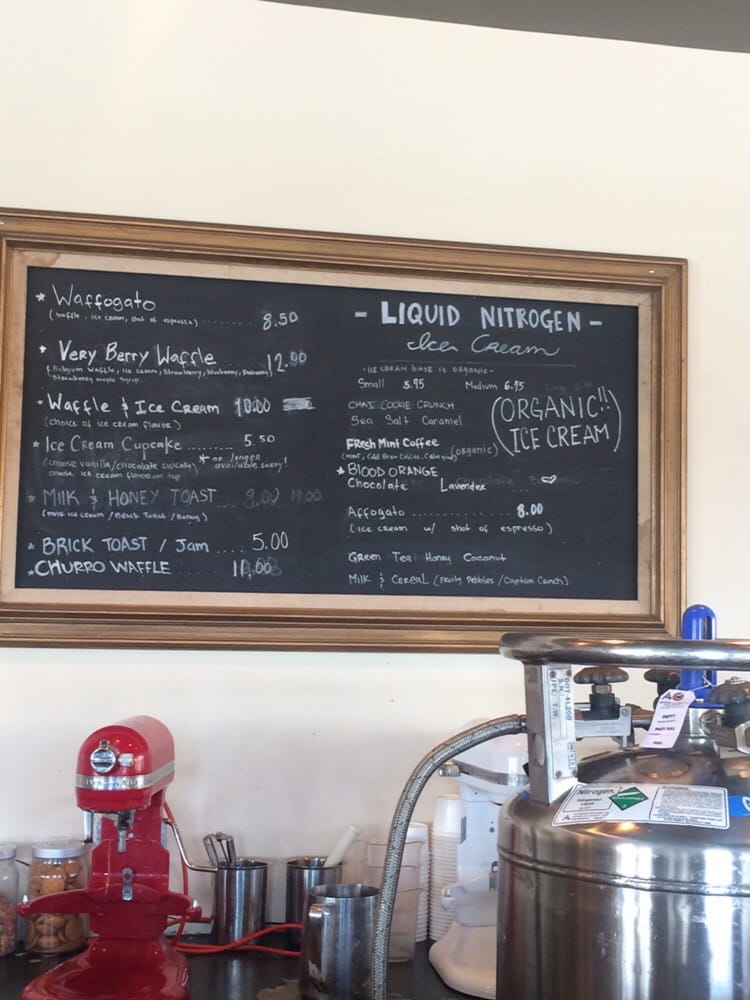 * Waffogato
(waffle, ice cream, shot of espresso) ........ 8.50
* Very Berry Waffle 12.00
(Belgium Waffle, Ice cream, Strawberry, blueberry,
Strawberry maple syrup
* Waffle & Ice Cream 10.00
(choice of ice cream flavor)
* Ice Cream Cupcake ........ 5.50
(choose vanilla/chocolate cupcake) * no longer available, sorry!
choose ice cream flavor on top
* Milk & Honey Toast
(milk ice cream / Brick Toast / Honey)
* BRICK TOAST / Jam .... 5.00
* CHURRO WAFFLE ..... 11.00
- LIQUID NITROGEN -
Ice Cream
- ICE CREAM BASE IS ORGANIC -
Small 5.95 Medium 6.95
CHAI COOKIE CRUNCH
Sea Salt Caramel
(ORGANIC!!
ICE CREAM)
Fresh Mint Coffee (organic)
(Mint, Cold Brew Coffee,
* BLOOD ORANGE
Chocolate Lavender
Affogato ................ 8.00
(ice cream w/ shot of espresso)
Green Tea Honey Coconut
Milk & Cereal (Fruity Pebbles / Captain Crunch)
DOT-4L200
S.N.
EMPTY
PART FULL
FULL
Nitrogen,
Refrigerated
Liquid